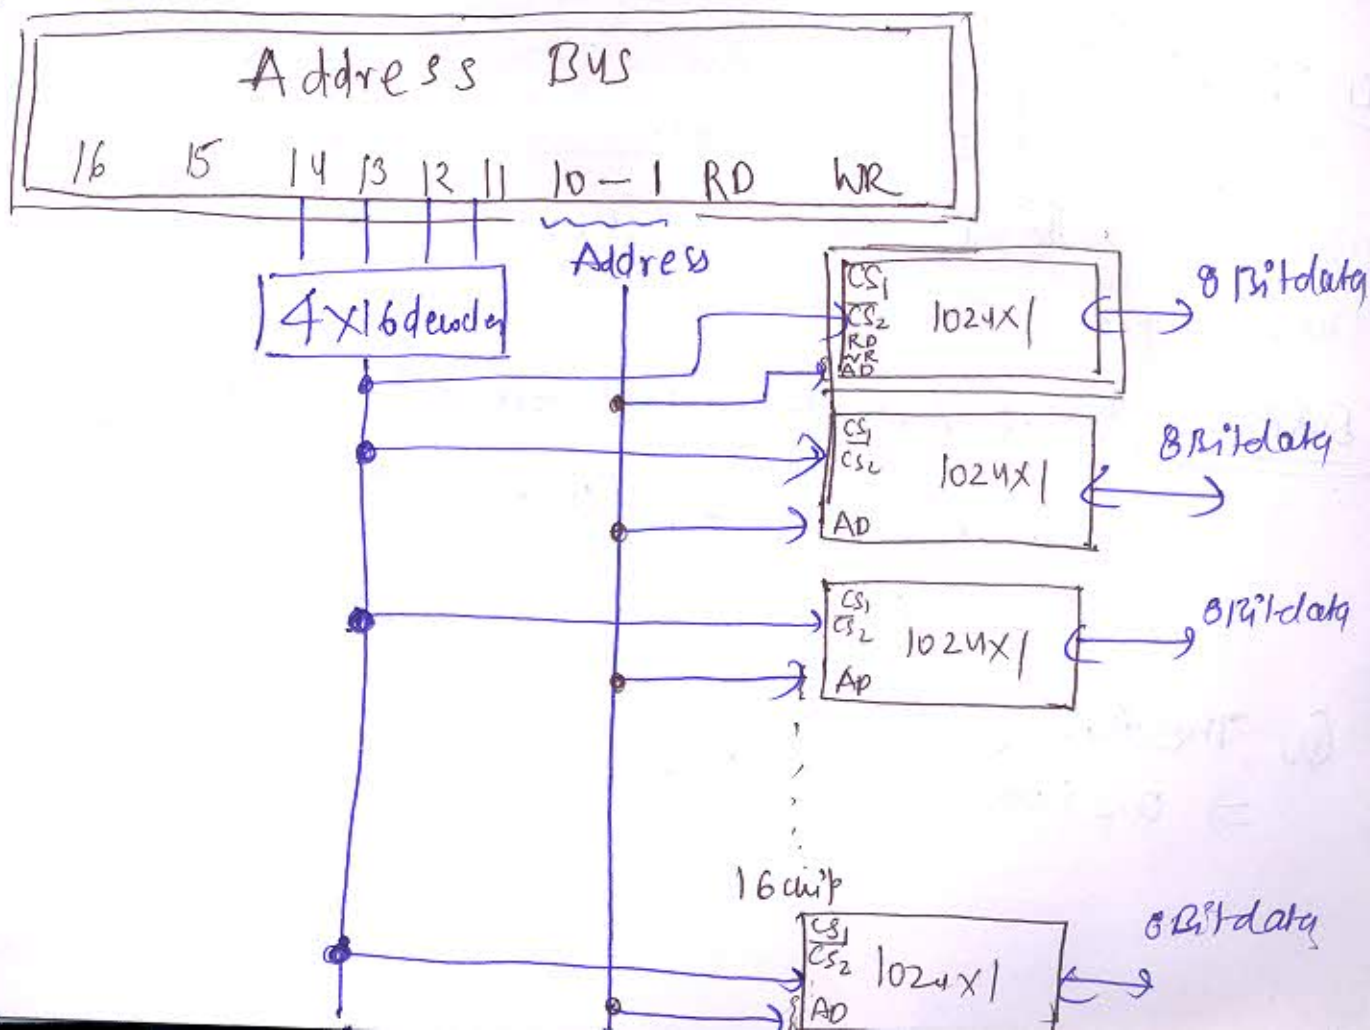 Address Bus
16 15 14 13 12 11 10 - 1 RD WR
Address
4X16 decoder
CS1
CS2
RD
WR
AD
1024X1
8 Bit data
CS1
CS2
AD
1024X1
8 Bit data
CS1
CS2
AD
1024X1
8 Bit data
16 chip
CS1
CS2
AD
1024X1
8 Bit data